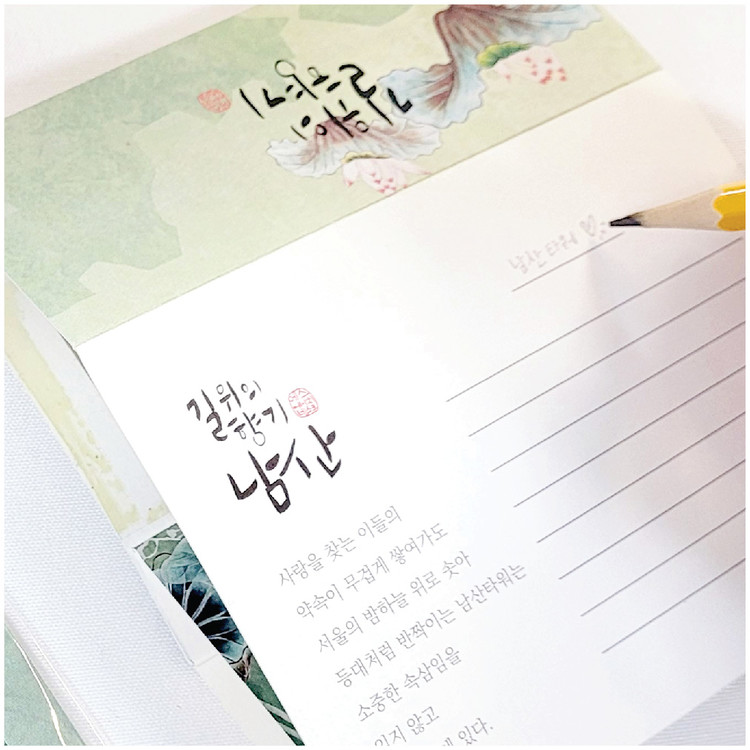 길위의
향기
남산타워
길위의
향기
남산
사랑을 찾는 이들의
약속이 무겁게 쌓여가도
서울의 밤하늘 위로 솟아
등대처럼 반짝이는 남산타워는
소중한 속삭임을
잊지 않고
있다.